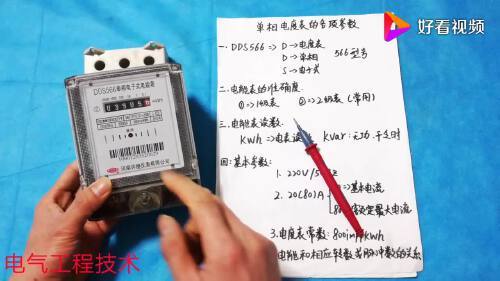 好看视频
单相电度表的各项参数
一. DDS566 => D→电度表
D→单相
S→电子式
566 型号
二. 电能表的准确度
①=>1级表 ②=>2级表 (常用)
三. 电能表读数
KWh => 电表读 KVar: 无功.千乏时
四: 基本参数:
1. 220V/5 Hz
2. 20(80)A => 基本电流
80 额定最大电流
3. 电度表常数: 800imp/KWh
电能和相应转数或脉冲数的关系
DDS566单相电子式电能表
电气工程技术